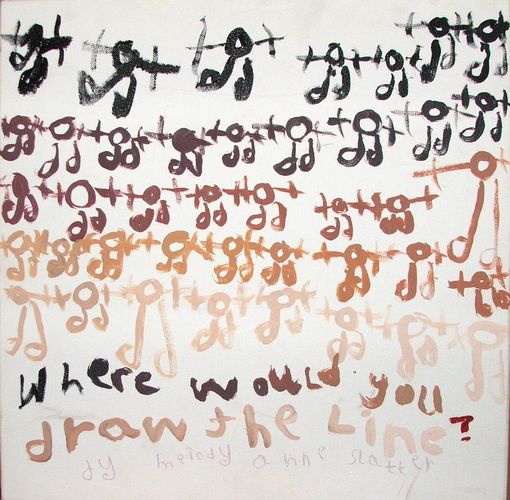 Where would you
draw the Line?
by melody anne slatter